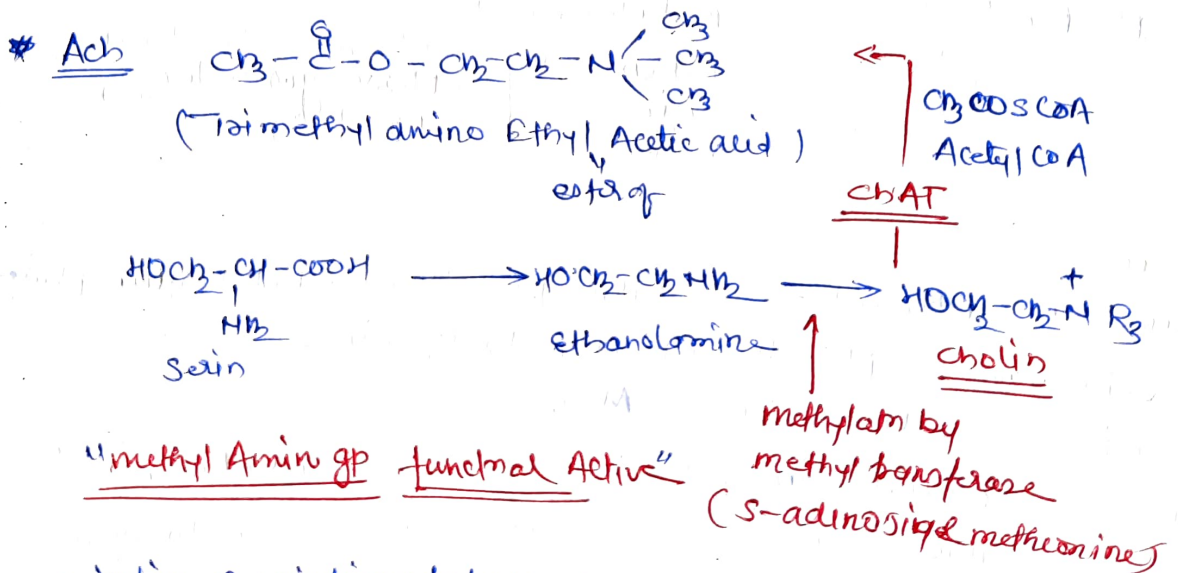 * Ach CH3-C-O-CH2-CH2-N-CH3
O
CH3
CH3
(Trimethyl amino Ethyl Acetic acid)
ester of
CH3COSCOA
Acetyl CoA
ChAT
HOCH2-CH-COOH → HO-CH2-CH2NH2 → HOCH2-CH2-N+ R3
NH2
Serin
Ethanolamine
Cholin
methylatn by
methyl transferase
(S-adinosine metheonine)
"methyl Amin gp functnal Active"